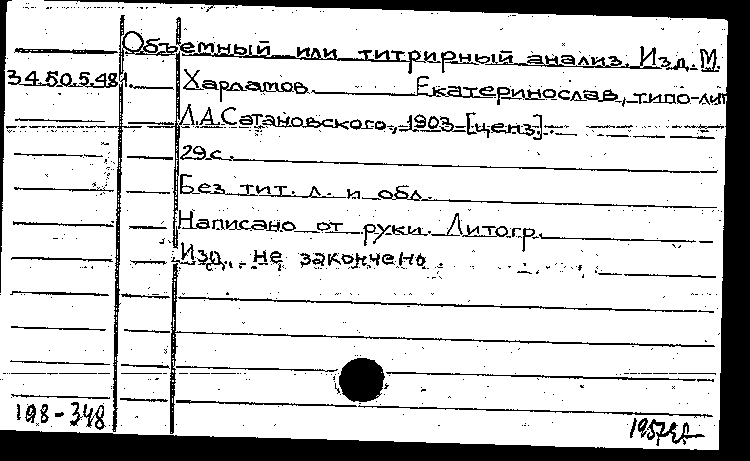 Объемный или титрирный анализ. Изд. М.
34.50.5.481. Харламов. Екатеринослав, типо-лит
Л.А.Сатановского, 1903 [ценз].
29с.
Без тит. л. и обл.
Написано от руки. Литогр.
Изд. не закончено.
198-348